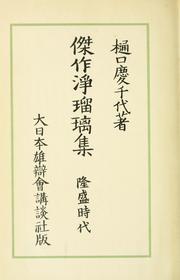 樋口慶千代著
傑作淨瑠璃集 隆盛時代
大日本雄辯會講談社版